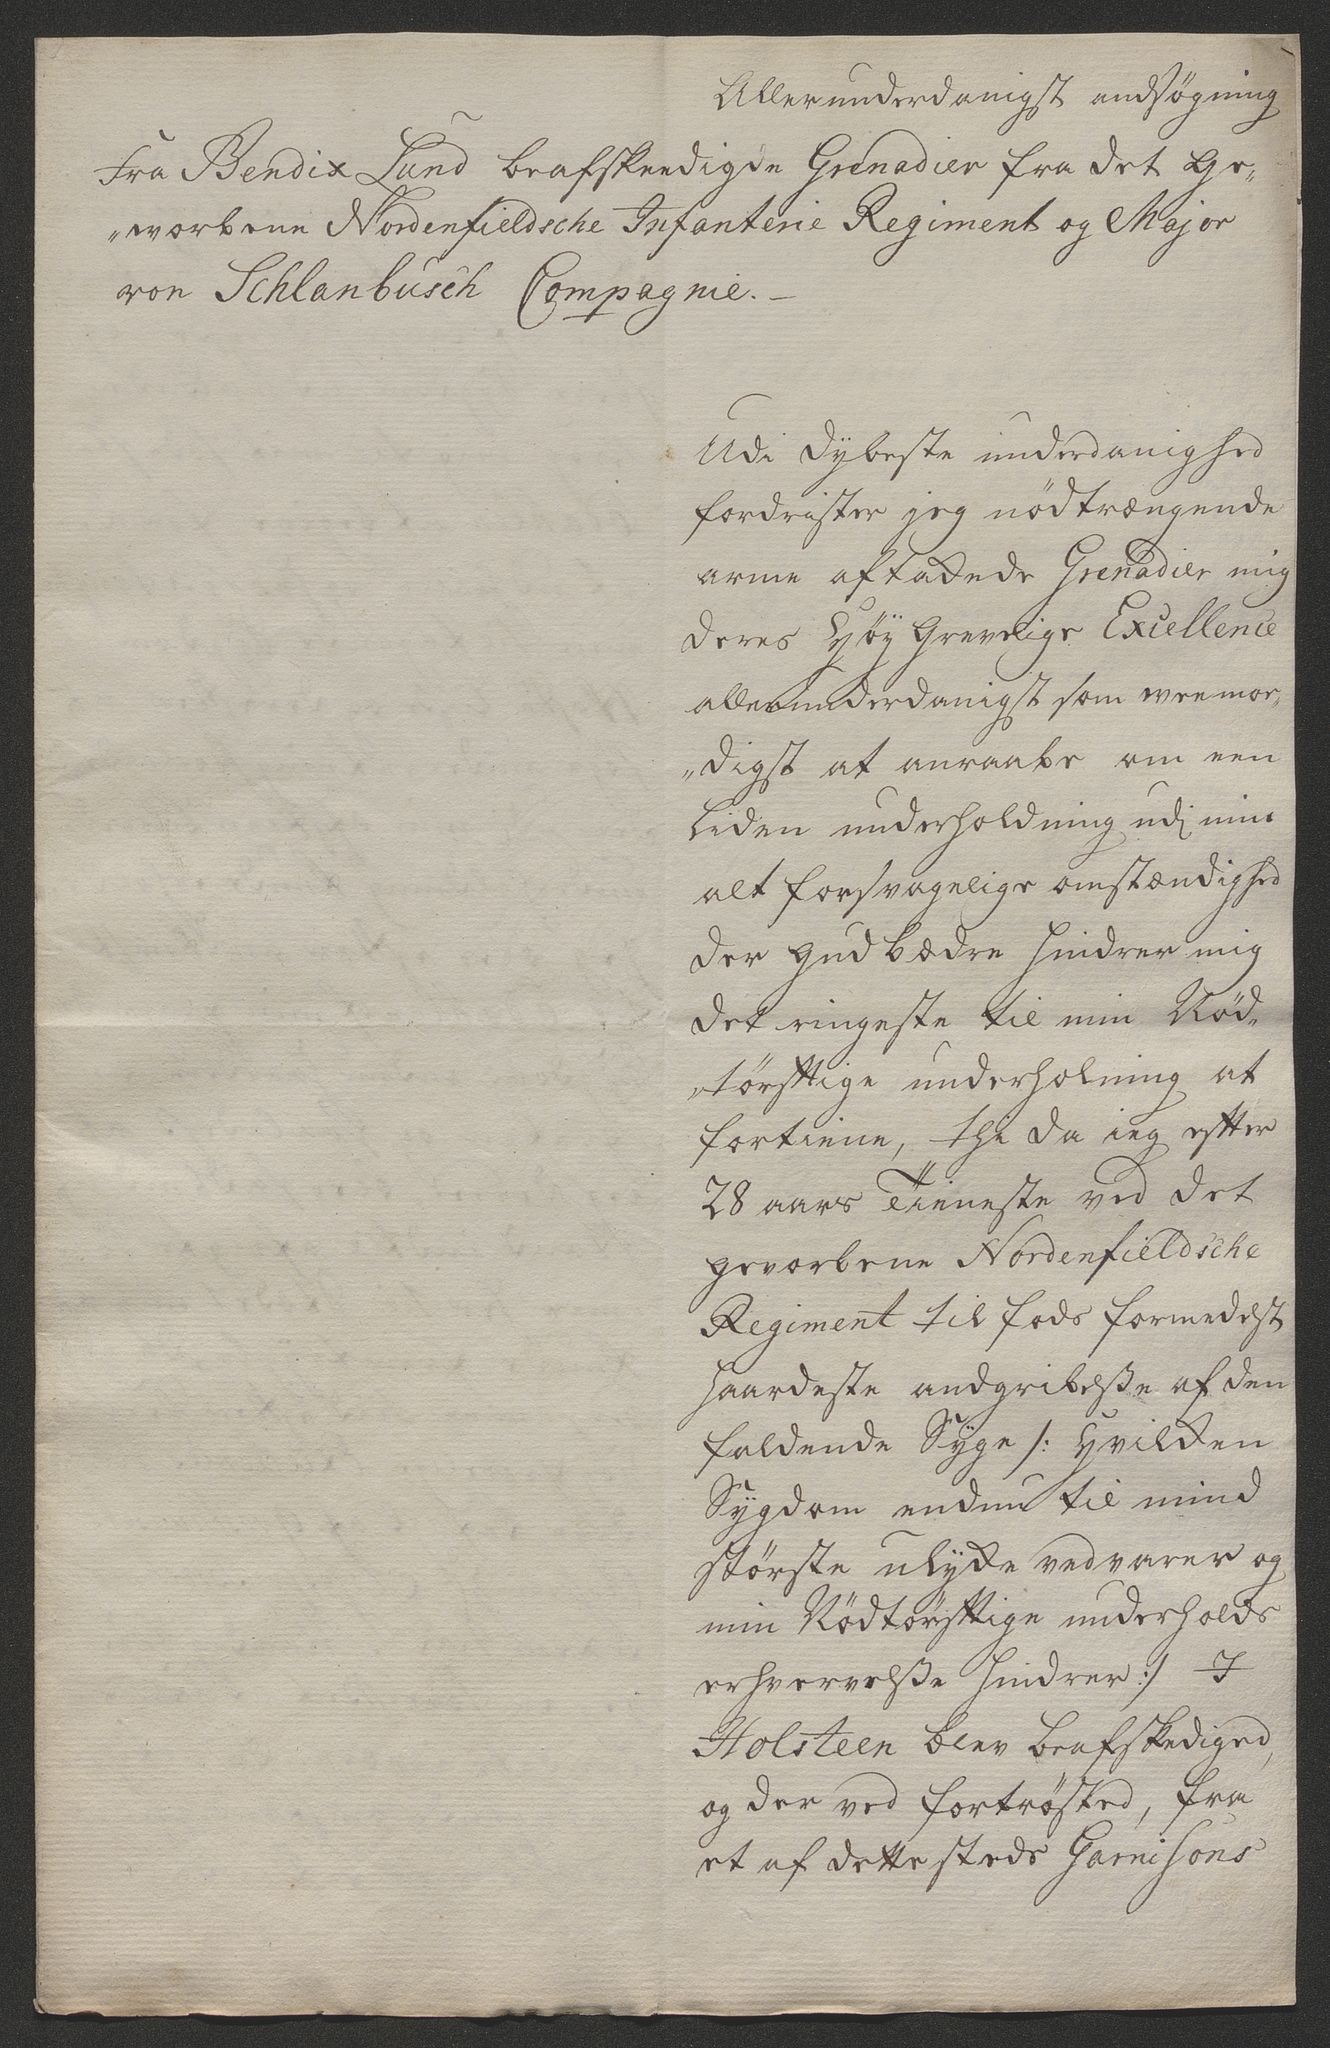 Allerunderdanigst andsögning
Fra Bendix Lund beafskeedigde Grenadier fra det Ge„
„worbene Nordenfieldsche Infanterie Regiment og Major
von Schlanbusch Compagnie. —
Udi dybeste underdanighed
fordrister jeg nödtrængende
arme aftakede Grenadier mig
deres Høy Grevelige Excellence
allerunderdanigst som veemo„
„digst at anraabe om een
liden underholdning udj min
alt for svagelige omstændighed
der gud bædre hindrer mig
det ringeste til min Nöd„
„törfftige underholning at
fortiene, thi da ieg effter
28 aars Tieneste ved det
gevorbene Nordenfieldsche
Regiment til fods formedelst
haardeste andgribelße af den
faldende Syge /: Hvilken
Sygdom endnu til mind
störste ulykke vedvarer og
min Nödtörfftige underholds
erhvervelße hindrer :/ I
Holsteen blev beafskediged,
og der ved fortrösted, fra
et af dette steds Garnisons